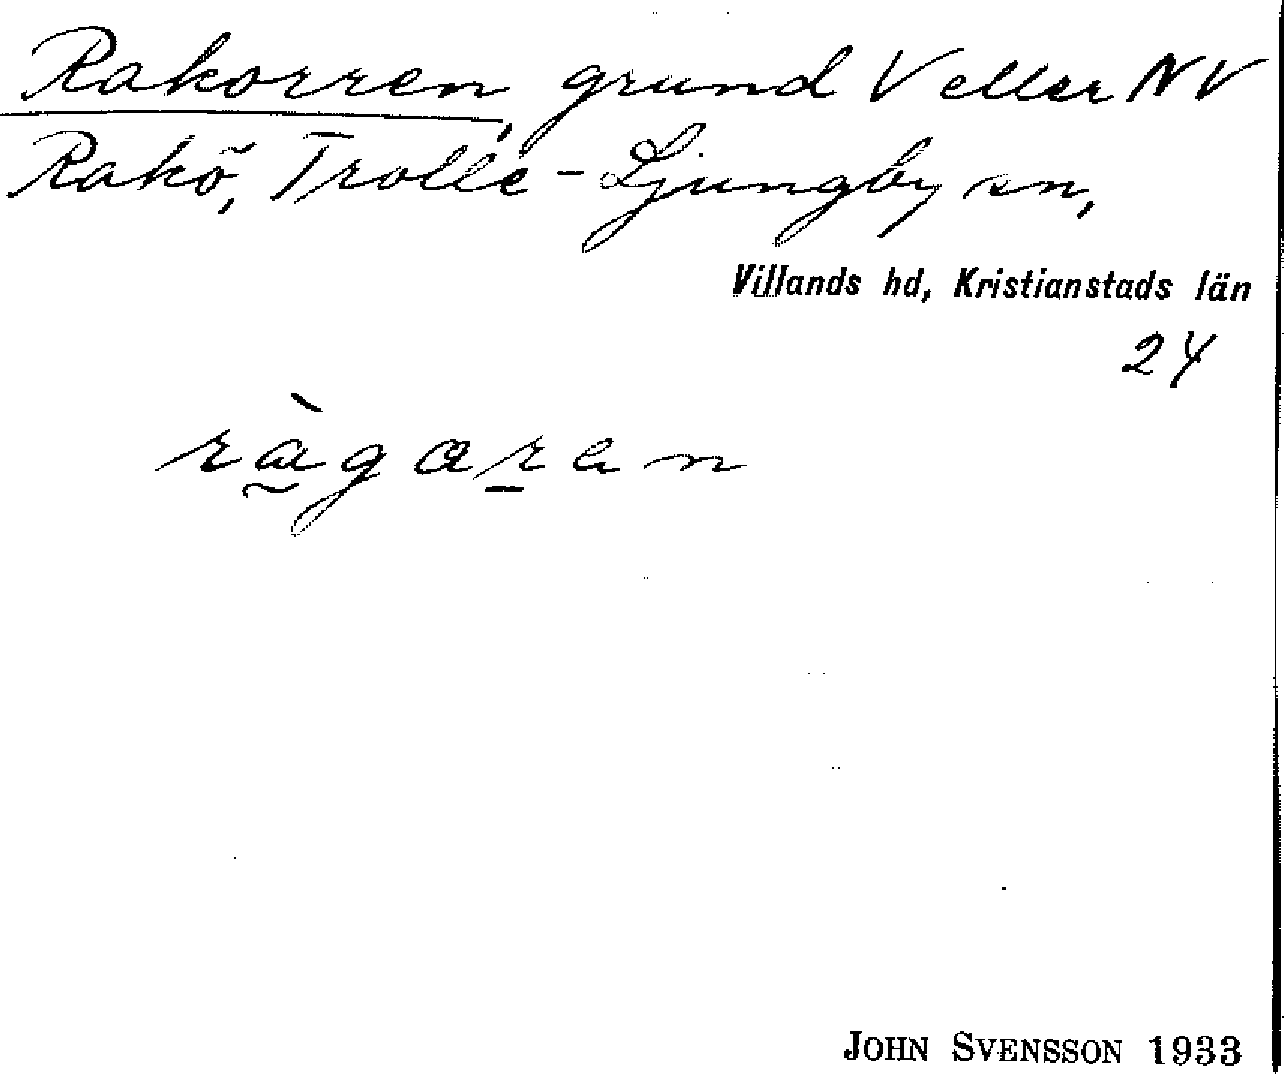 Rakorren, grund V eller NV
Rakö, Trolle-Ljungby sn,
Villands hd, Kristianstads län
24
rà̰gar̲en
JOHN SVENSSON 1933